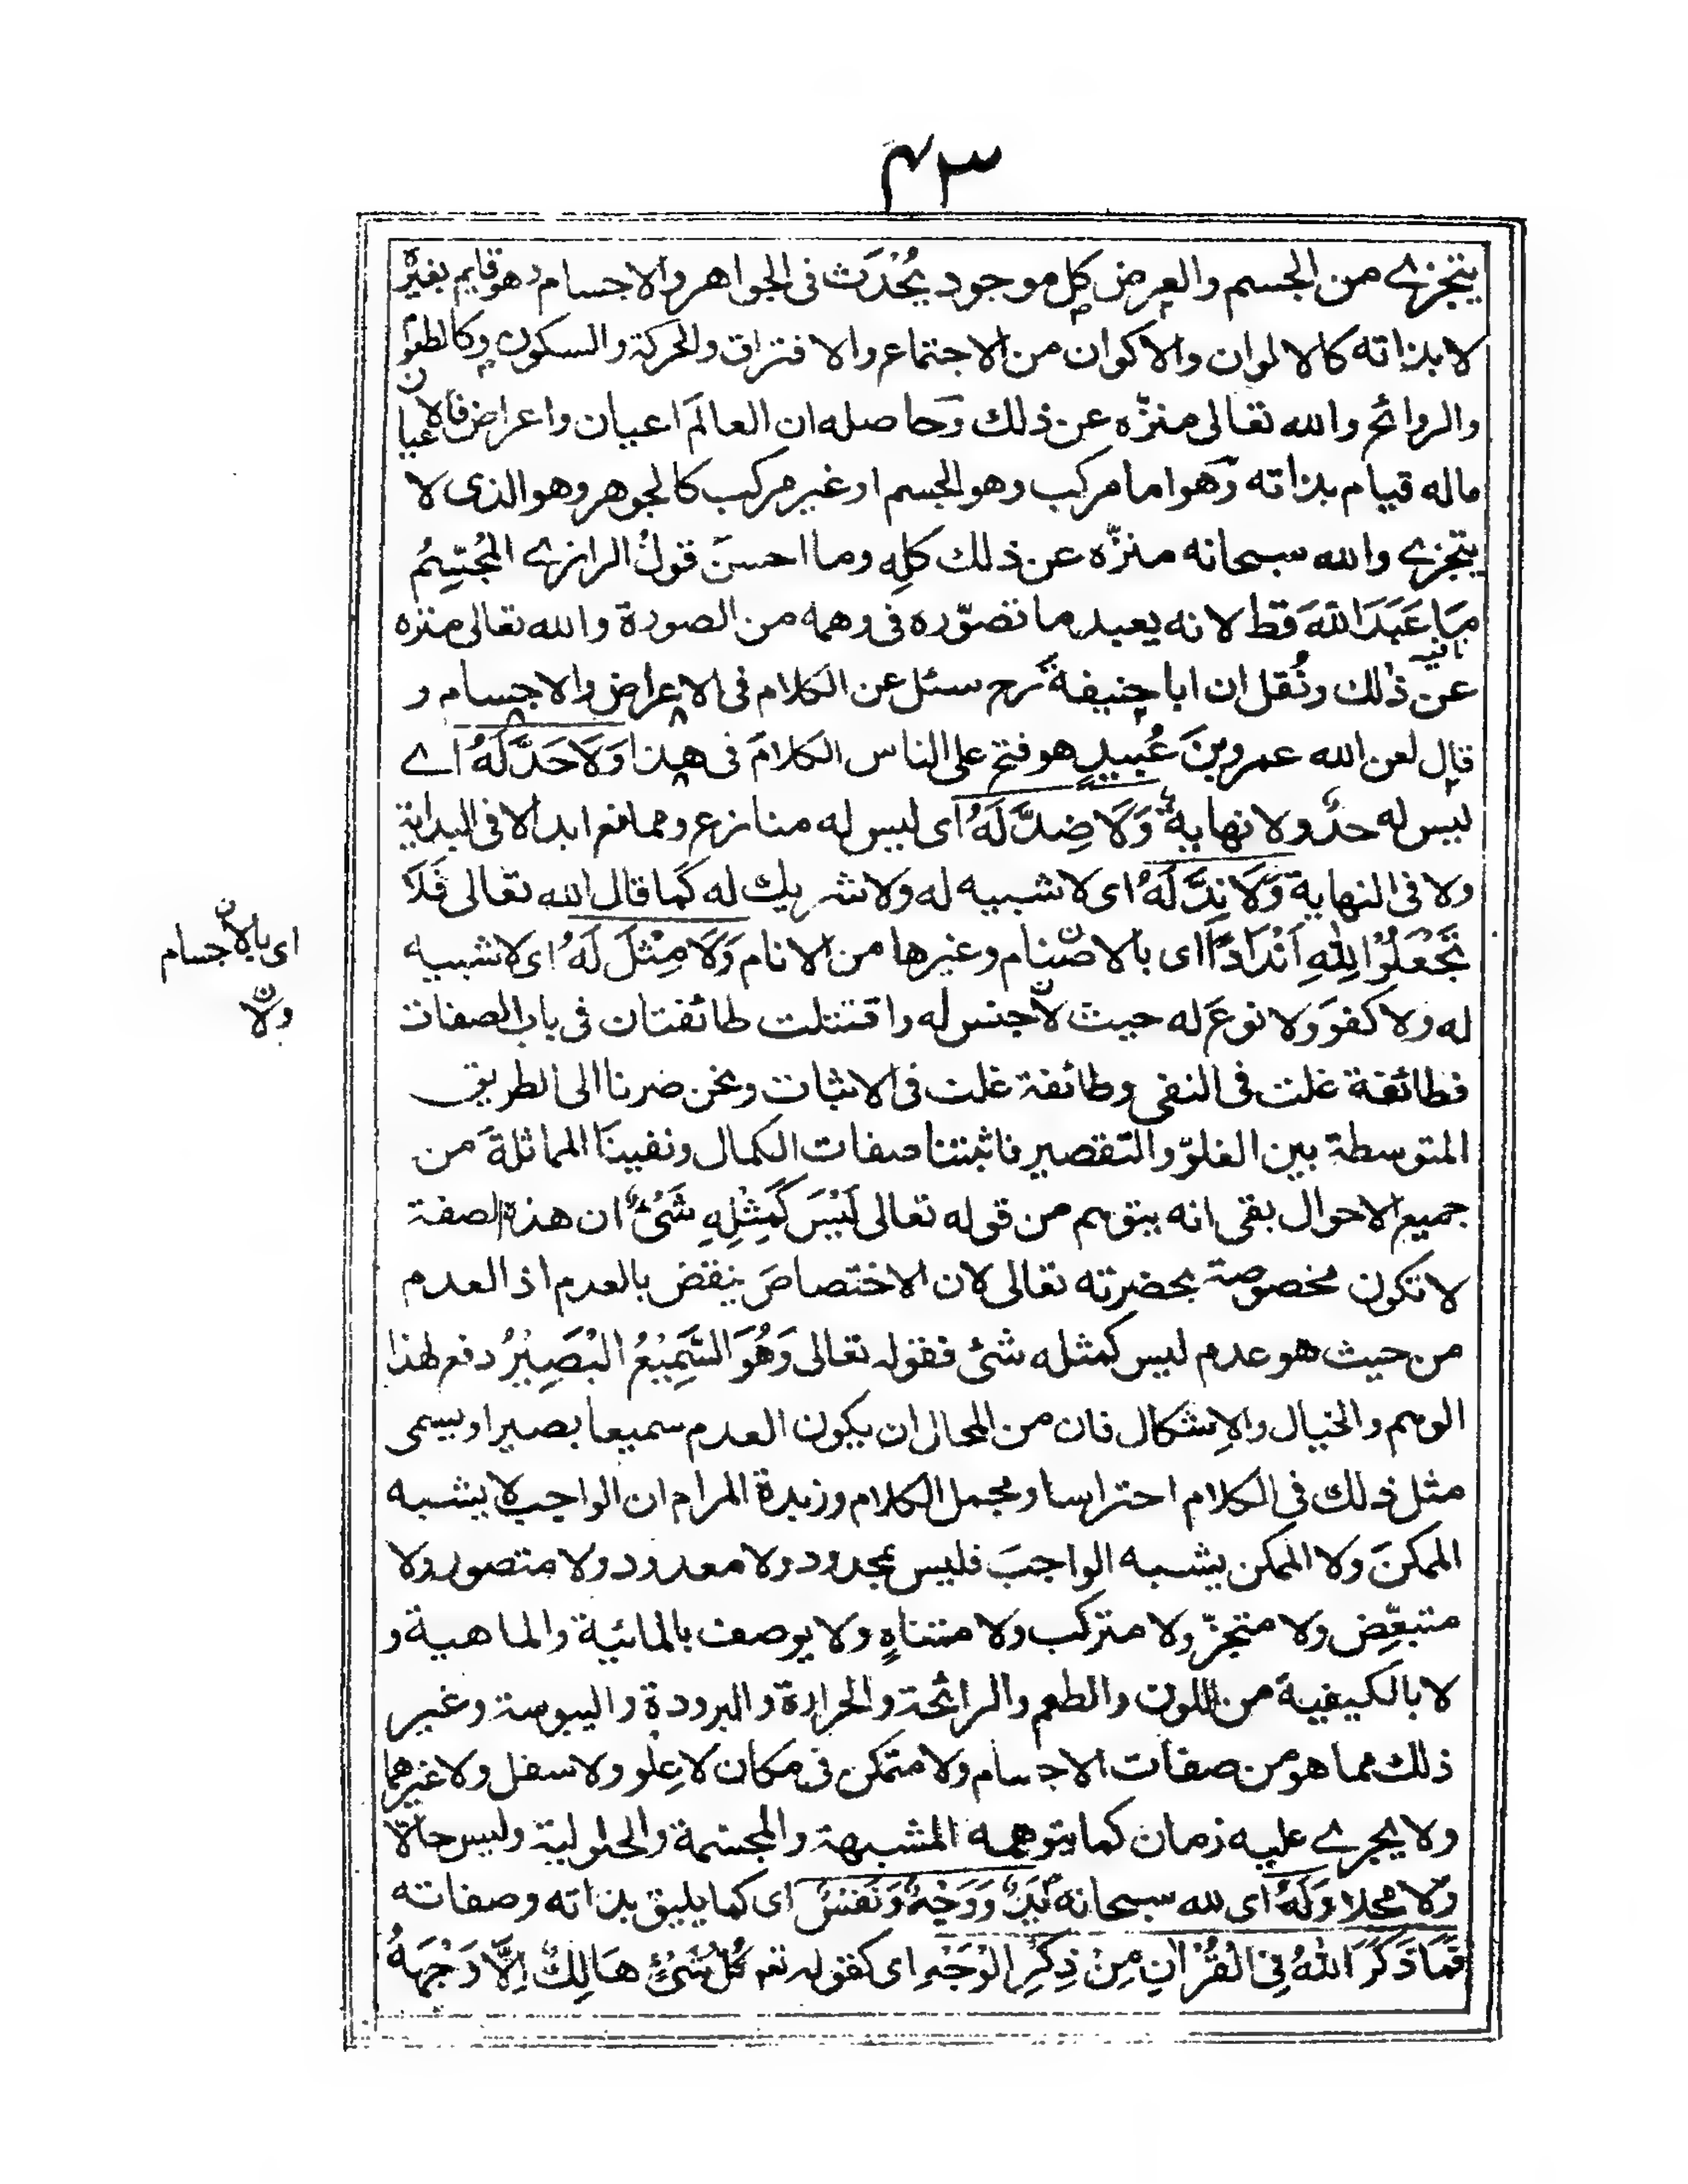 ٤٣
يتجزے من الجسم والعرض كل موجود يُحْدَث فى الجواهر والاجسام وهو قايم بغيره
لا بذاته كالالوان والاكوان من الاجتماع والافتراق والحركة والسكون وكالطعوم
والروائح والله تعالى منزّه عن ذلك وَحاصله ان العالَم اعيان واعراض فالاعيان
ماله قيام بذاته وَهو اما مركب وهو الجسم او غير مركب كالجوهر وهو الذى لا
يتجزے والله سبحانه منزّه عن ذلك كلِه وما احسنَ قولُ الرازے المُجسِّمُ
مَا عَبَدَ اللهَ قط لانه يعبد ما تصوّره فى وهمه من الصورة والله تعالى منزه
عن ذلك ونُقل ان ابا حنيفة رح سئل عن الكلام فى الاعراض والاجسام و
قال لعن الله عمرو بنَ عُبيدٍ هو فتح على الناس الكلامَ فى هذا وَلَا حَدَّ لَهُ اے
ليس له حدٌ ولا نهايةٌ وَلَا ضِدَّ لَهُ اى ليس له منازع وممانع ابدا لا فى البداية
ولا فى النهاية وَلَا نِدَّ لَهُ اى لا شبيه له ولا شريك له كما قال الله تعالى فَلَا
تَجْعَلُوْا لِلّٰهِ اَنْدَادًا اى بالاصنام وغيرها من الانام وَلَا مِثْلَ لَهُ اى لا شبيه
اى بالاجسام ن
له ولا كفوَ ولا نوعَ له حيث لا جنس له واقتتلت طائفتان فى باب الصفات
ولا ن
فطائفة غلت فى النفى وطائفة غلت فى الاثبات ونحن صرنا الى الطريق
المتوسطة بين الغلوّ والتقصير فاثبتنا صفات الكمال ونفينا المماثلةَ من
جميع الاحوال بقى انه يتوهم من قوله تعالى لَيْسَ كَمِثْلِهِ شَىْءٌ ان هذه الصفة
لا تكون مخصوصة بحضرته تعالى لان الاختصاصَ ينقض بالعدم اذ العدم
من حيث هو عدم ليس كمثله شئ فقوله تعالى وَهُوَ السَّمِيْعُ الْبَصِيْرُ دفع لهذا
الوهم والخيال والاِشكال فان من المحال ان يكون العدم سميعا بصيرا ويسمى
مثل ذلك فى الكلام احتراسا ومجمل الكلام وزبدة المرام ان الواجب لا يشبه
الممكنَ ولا الممكن يشبه الواجبَ فليس بمحدود ولا معدود ولا متصور ولا
متبعِّض ولا متجزّ ولا متركب ولا متناهٍ ولا يوصف بالمائية والماهية و
لا بالكيفية من اللون والطعم والرائحة والحرارة والبرودة واليبوسة وغير
ذلك مما هو من صفات الاجسام ولا متمكن فى مكان لا علو ولا سفل ولا غيرهما
ولا يجرے عليه زمان كما يتوهمه المشبهة والمجسّمة والحلولية وليس حالّا
ولا محلا وَلَهُ اى لله سبحانه يَدٌ وَوَجْهٌ وَنَفْسٌ اى كما يليق بذاته وصفاته
فَمَا ذَكَرَ اللهُ فِى الْقُرْاٰنِ مِنْ ذِكْرِ الْوَجْهِ اى كقوله تعم كُلُّ شَىْءٍ هَالِكٌ اِلَّا وَجْهَهُ